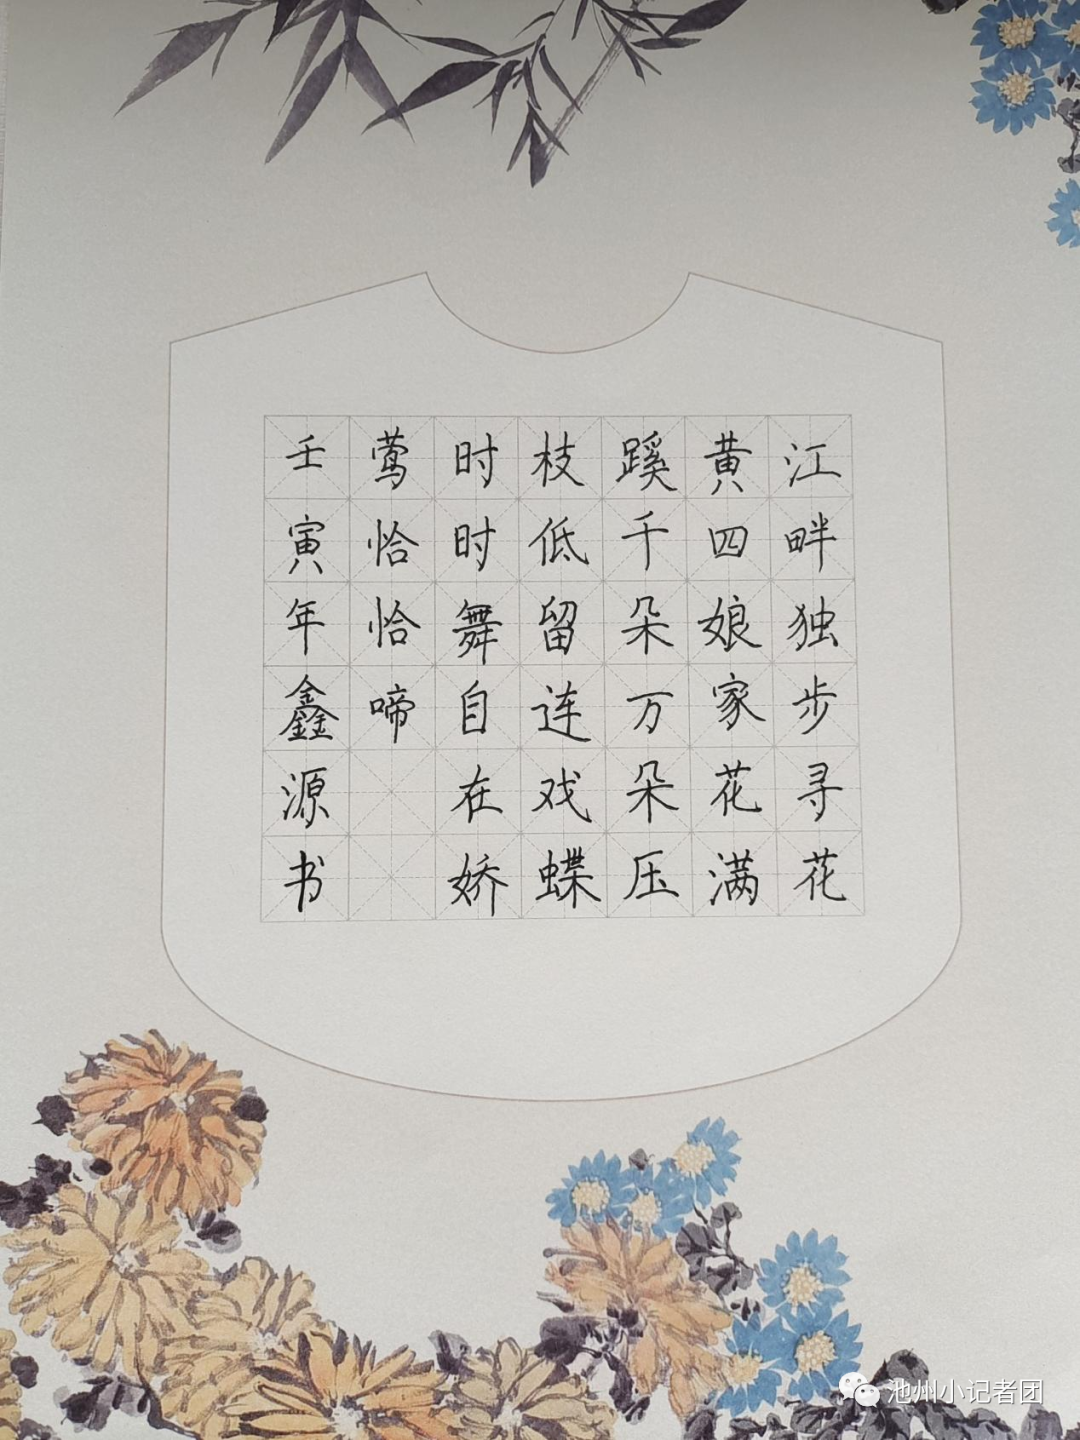 江畔独步寻花
黄四娘家花满
蹊千朵万朵压
枝低留连戏蝶
时时舞自在娇
莺恰恰啼
壬寅年鑫源书
池州小记者团